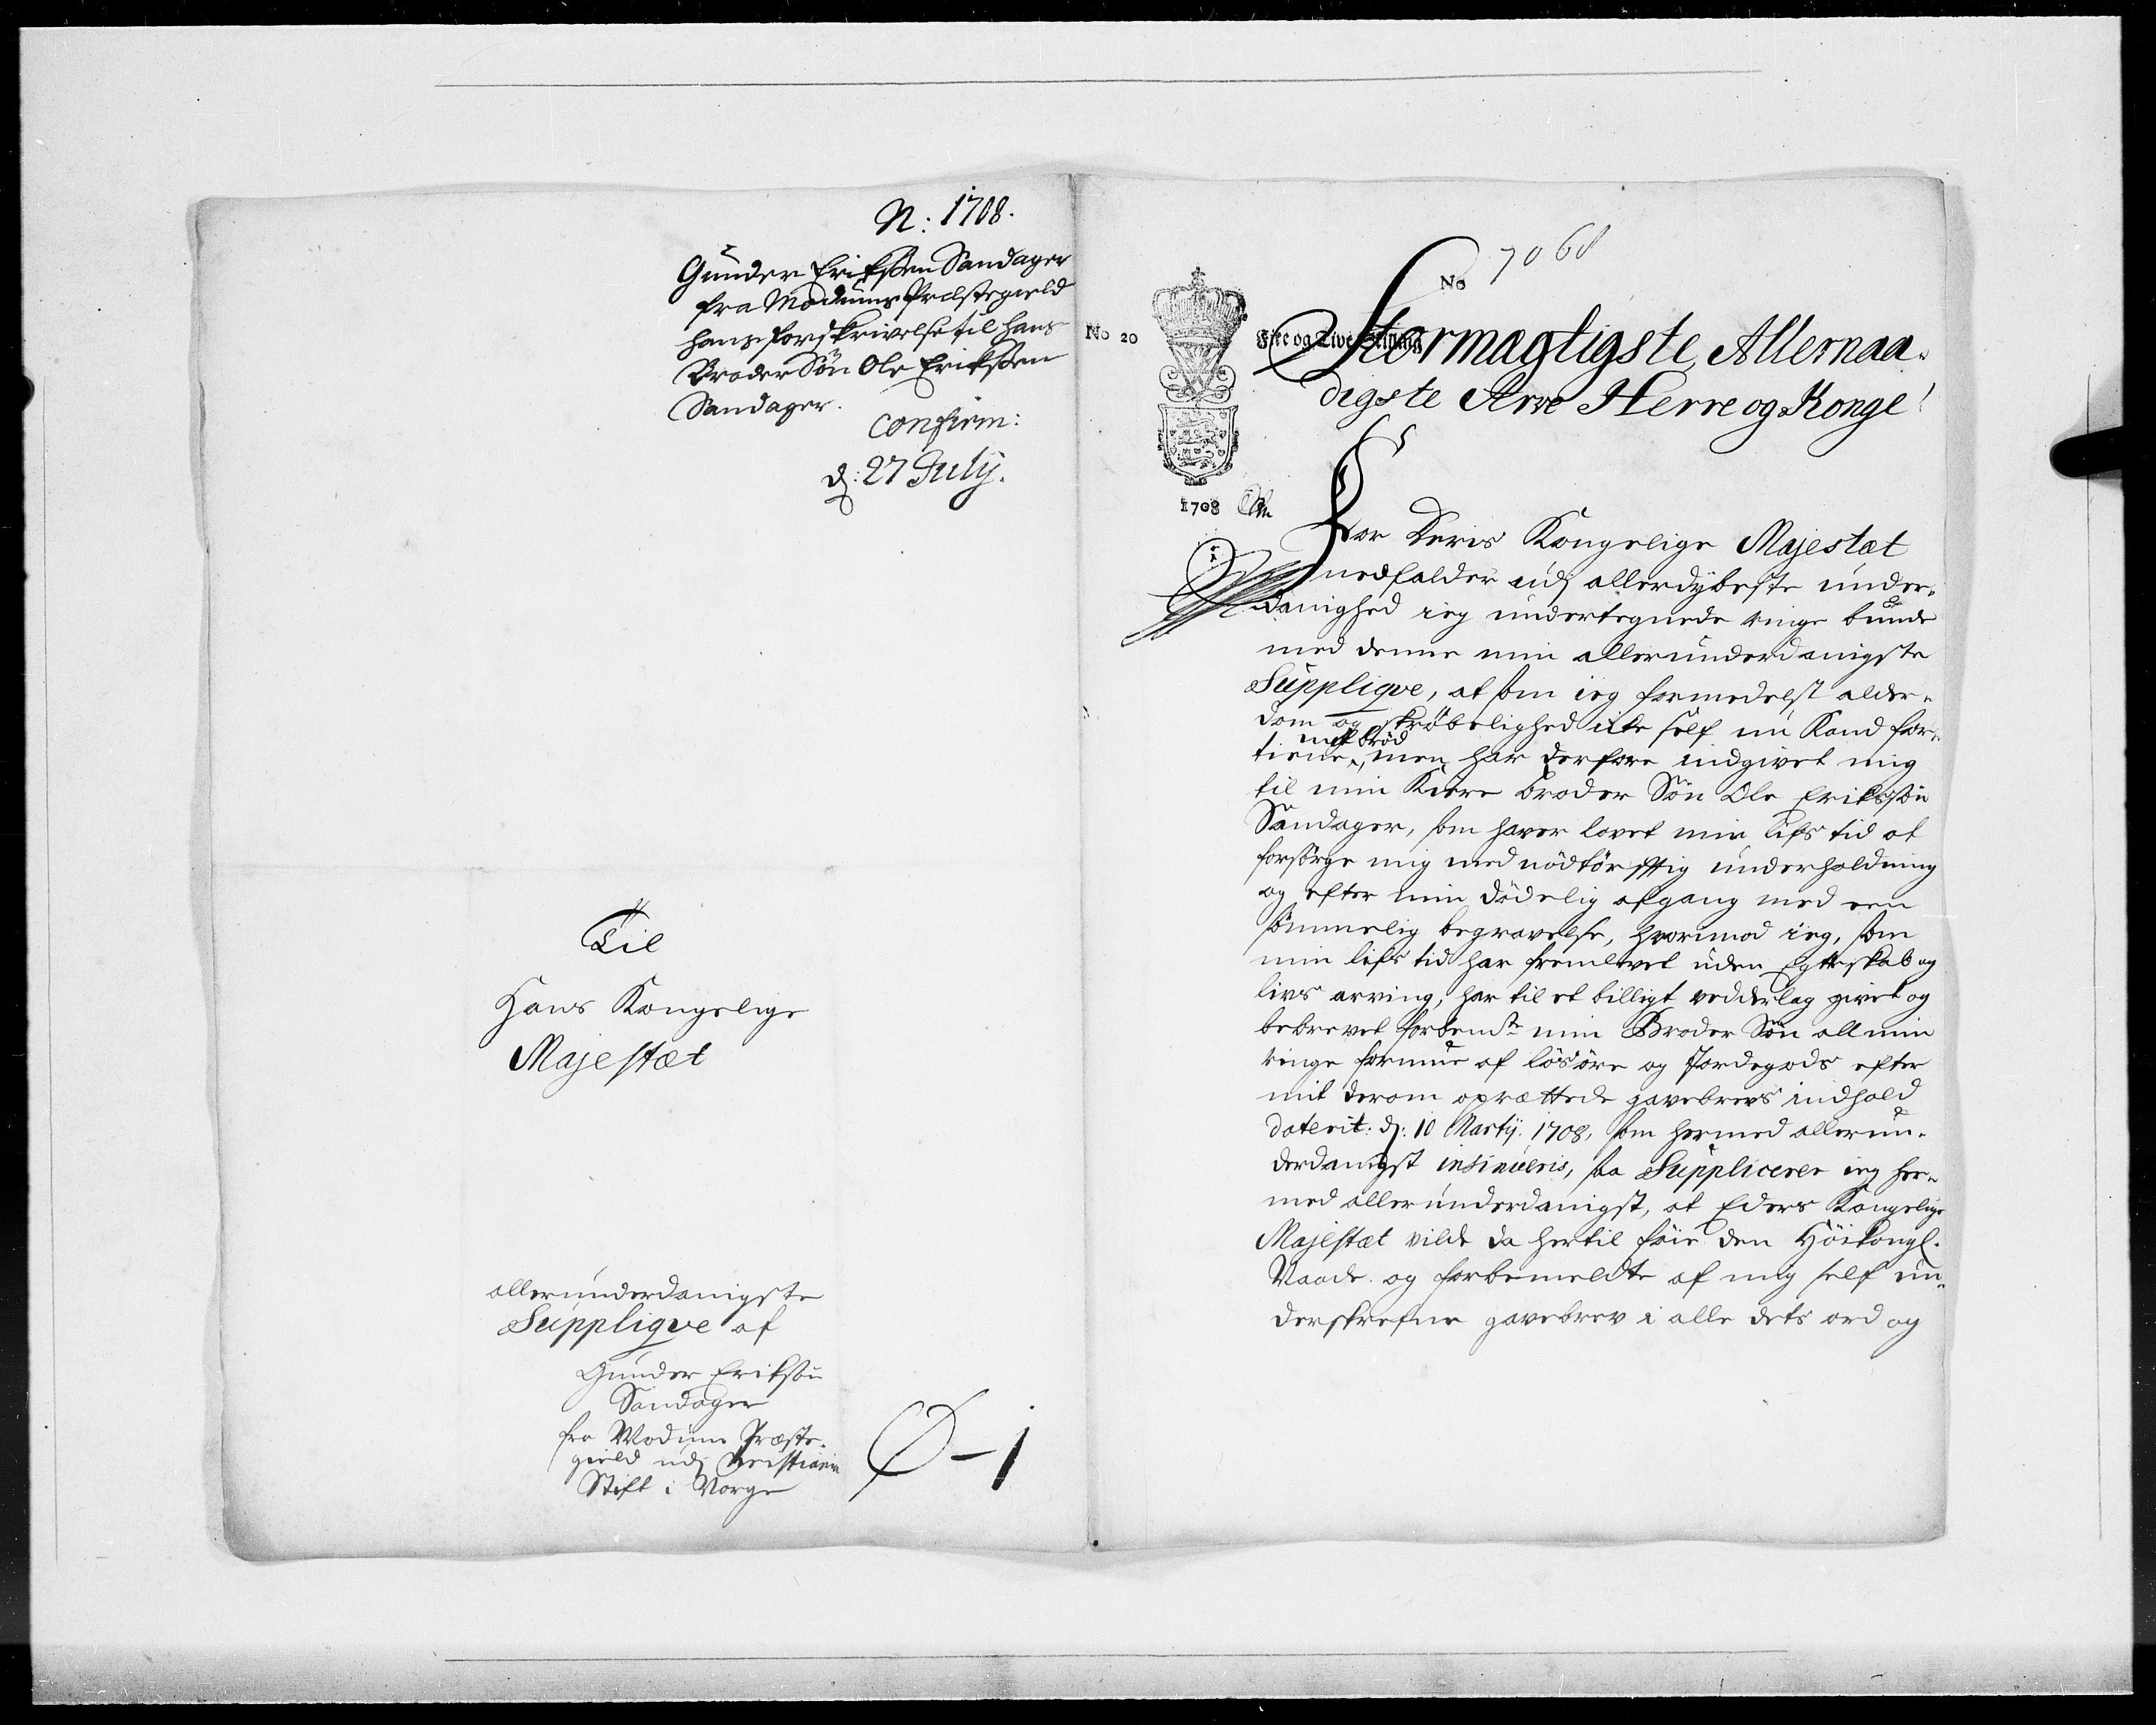 N: 1708.
Gunder Erikssen Sandager
fra Modums Præstegield
hans forskrivelse til hans
Broder Søn Ole Erikssen
Sandager.
Confirm:
d: 27 July.
Til
Hans Kongelige
Majestæt
allerunderdanigste
Supplique af
Gunder Erikssøn
Sandager
fra Modum Præste-
gield udj Christiania
Stift i Norge
No 7068
No 20
Fire og Tive Skilling
1708
Stormægtigste, Allernaa-
digste Arve Herre og Konge!
For Deris Kongelige Majestæt
nedfalder udj allerdybeste under-
danighed ieg undertegnede ringe bunde
med denne min allerunderdanigste
Supplique, at som ieg formedelst alder-
dom og skrøbelighed icke self nu Kand for-
mit brød
tiene, men har derfore indgivet mig
til min Kiere broder Søn Ole Erikssøn
Sandager, som haver lovet min lifs tid at
forsørge mig med nødtørfftig underholdning
og efter min dødelig afgang med een
sømmelig begravelse, hvorimod ieg, som
min lifs tid har fremlevet uden Egteskab og
livs arving, har til et billigt vedderlag givet og
bebrevet forbemte min Broder Søn all min
ringe formue af løsøre og Jordegods efter
mit derom oprættede gavebrevs indhold
daterit: d: 10 Martij. 1708, som hermed allerun-
derdanigst insinueris, saa Supplicerer ieg her-
med allerunderdanigst, at Eders Kongelige
Majestæt vilde da hertil føie den Høikongl.
Naade og forbemeldte af mig self un-
derskrefne gavebrev i alle dets ord og